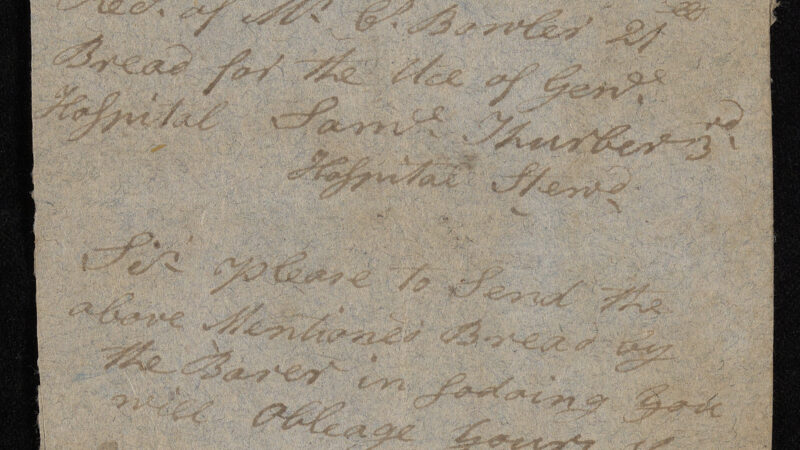 Recd. of Mr. C. Bowler 21 lb
Bread for the Uce of Genrl.
Hospital Saml. Thurber 3rd.
Hospital Stewd.
Sir please to Send the
above Mentioned Bread by
the Barer in Sodoing you
will Obleage yours